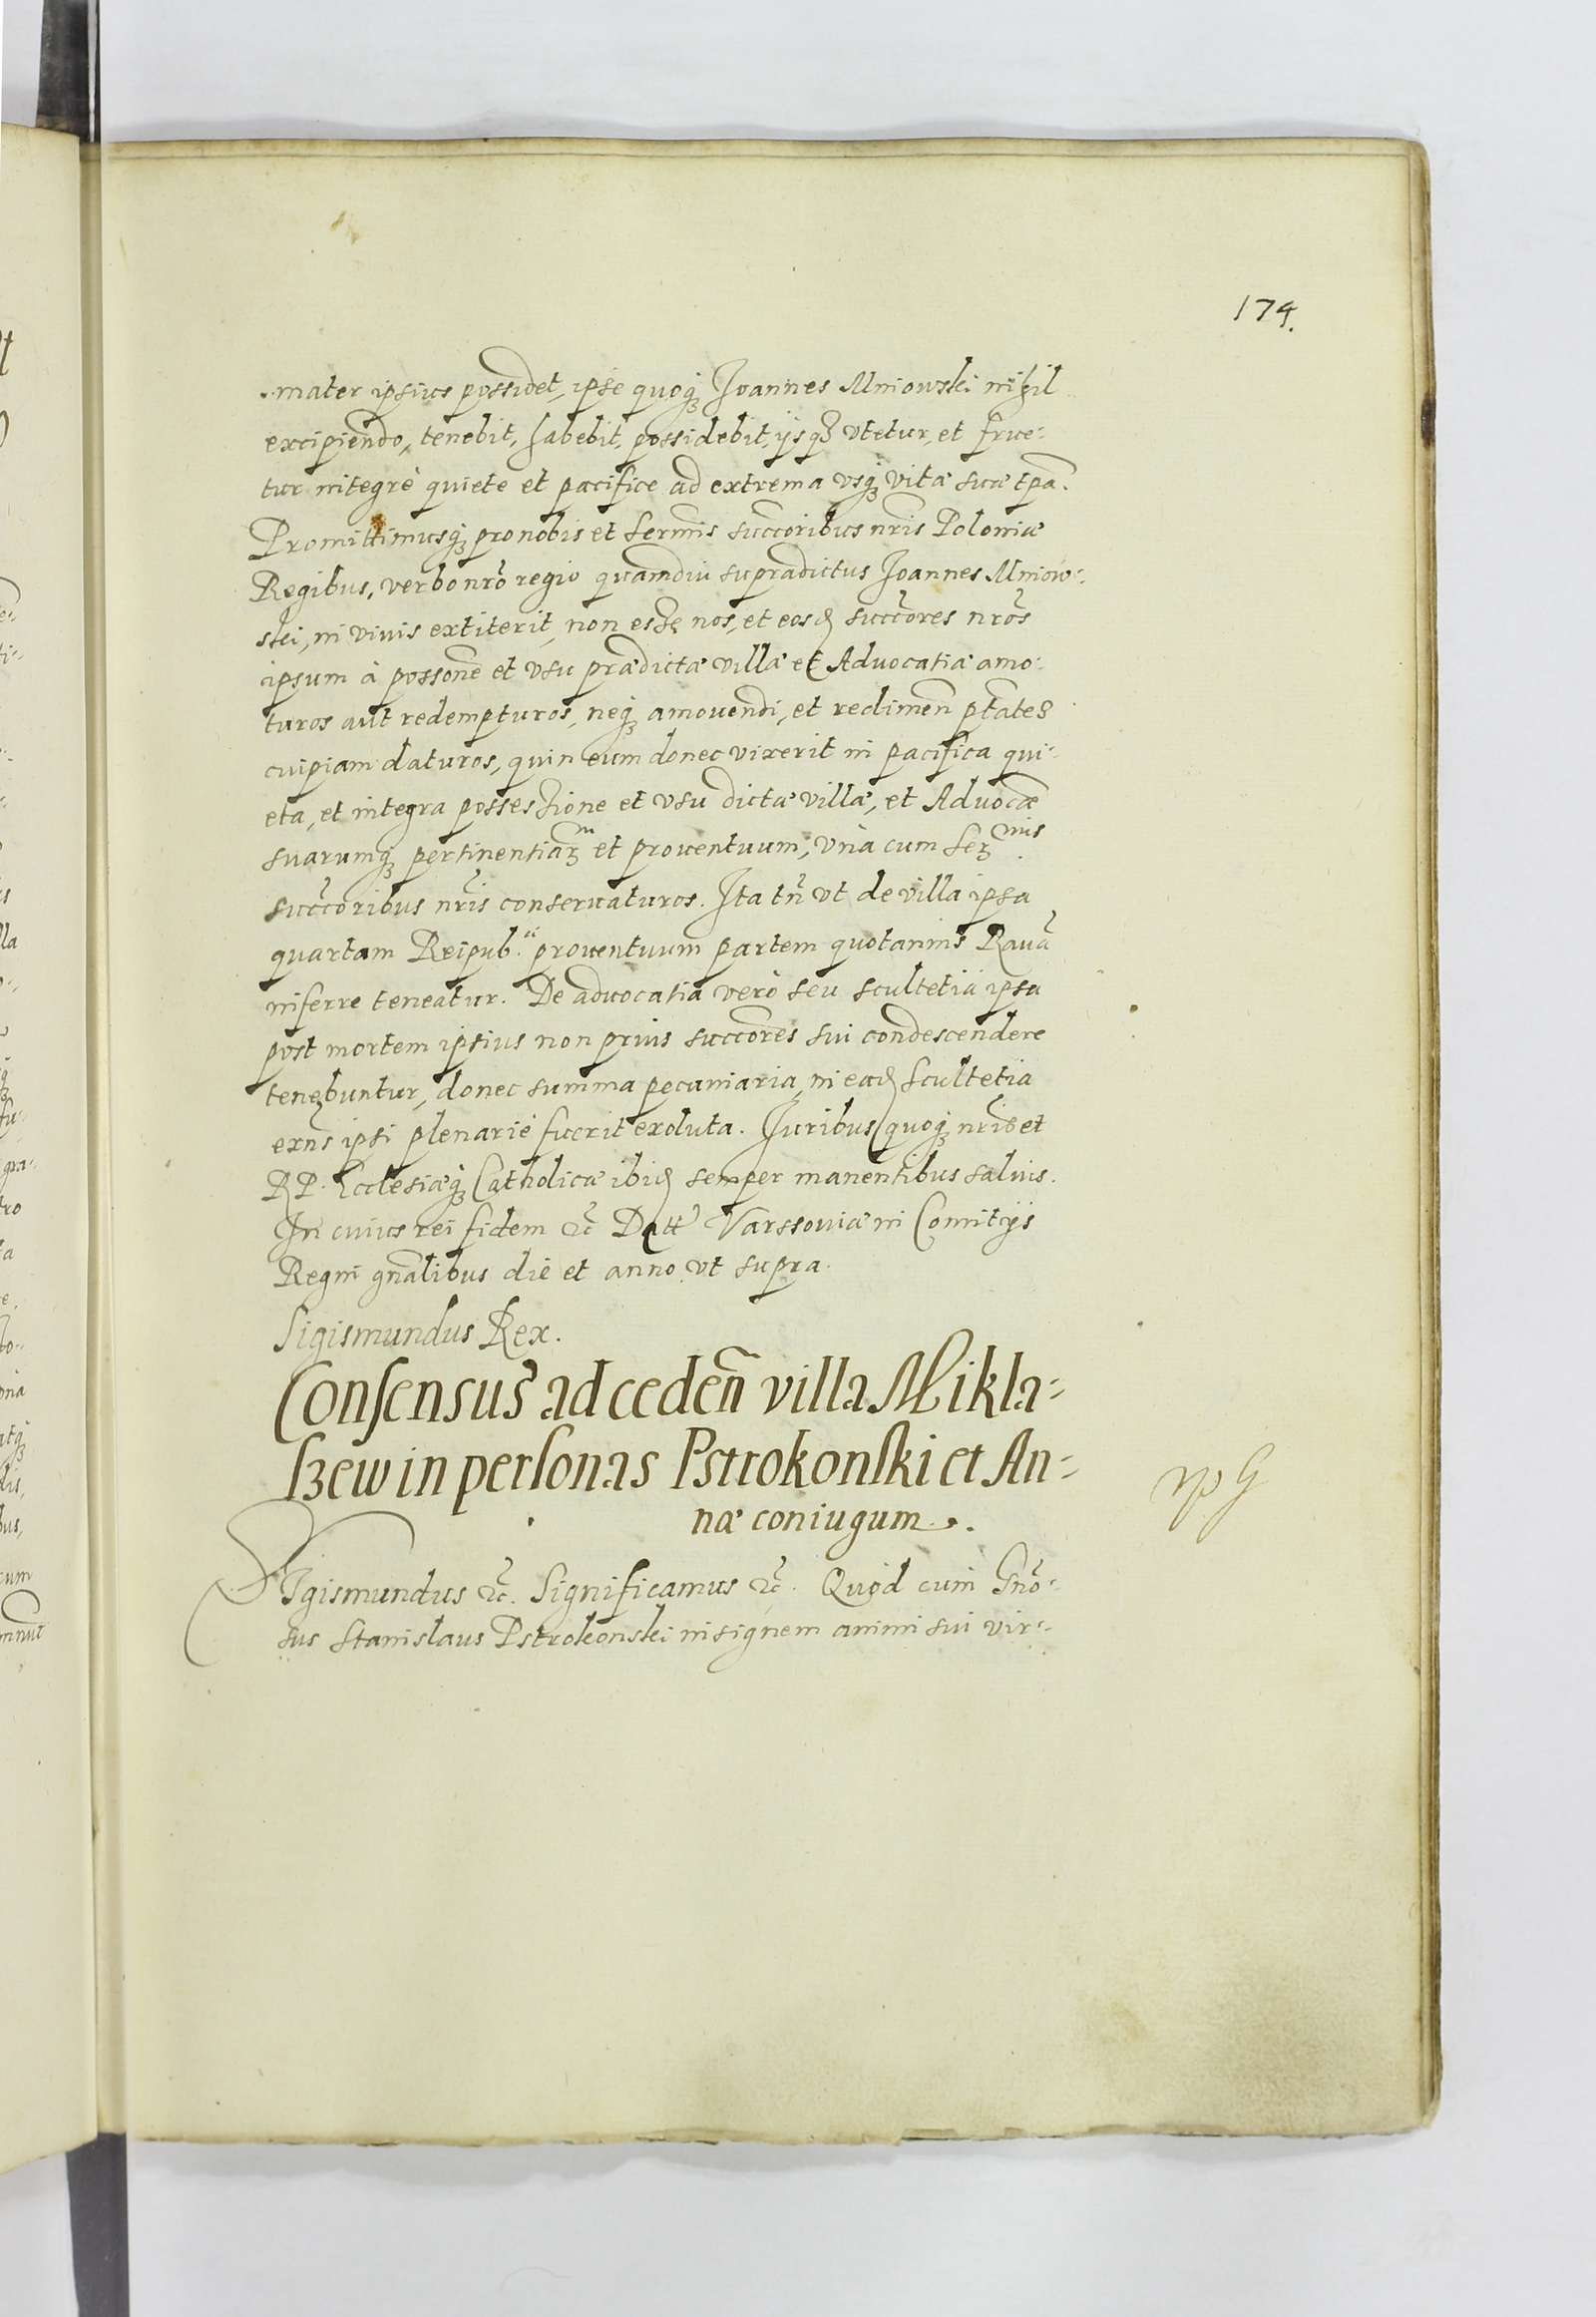 174.
mater ipsius possidet, ipse quoq́ꝫ Joannes Mniowski nihil
excipiendo, tenebit, habebit, possidebit, ijsqꝫ vtetur, et frue-
tur integrè quiete et pacifice ad extrema vsq́ꝫ vitæ suæ tp̃a.
Promittimusq́ꝫ pro nobis et Serm̃is succorib̃us nr̃is Poloniæ
Regibus, verbo nr̃o regio quamdiu supradictus Joannes Mniow-
ski, in viuis extiterit, non esse nos, et eosđ succ̃ores nr̃os
ipsum à possone͂ et vsu prædictæ villæ et Aduocatiæ amo-
turos aut redempturos, neq́ꝫ amouendi, et redimen͂ ptãtes
cuipiam daturos, quin eum donec vixerit in pacifica qui-
eta, et integra possessione et vsu dictæ villæ, et Aduocæ͂
suarumq́ꝫ pertinentiarꝫ͂ et prouentuum, vnà cum Serꝫ mis
succ̃oribus nr̃is conseruaturos. Ita tñ vt de villa ipsa
quartam Reipub. prouentuum partem quotannis Rauã
inferre teneatur. De aduocatia verò seu scultetia ipsa
post mortem ipsius non prius succ̃ores sui condescendere
tenebuntur, donec summa pecuniaria, in eađ Scultetia
exñs ipsi plenariè fuerit exoluta. Juribus quoq́ꝫ nr̃is et
RP. Ecclesiæq́ꝫ Catholicæ ibiđ semper manentibus saluis.
In cuius rei fidem &c̃ Datt Varssouiæ in Comitijs
Regni gñalibus die et anno vt supra.
Sigismundus Rex.
Consensus ad cedeñ villa Mikla-
szew in personas Pstrokonski et An-
næ coniugum.
Sigismundus &c̃. Significamus &c̃. Quod cum Gño-
sus Stanislaus Pstrokonski insignem animi sui vir-